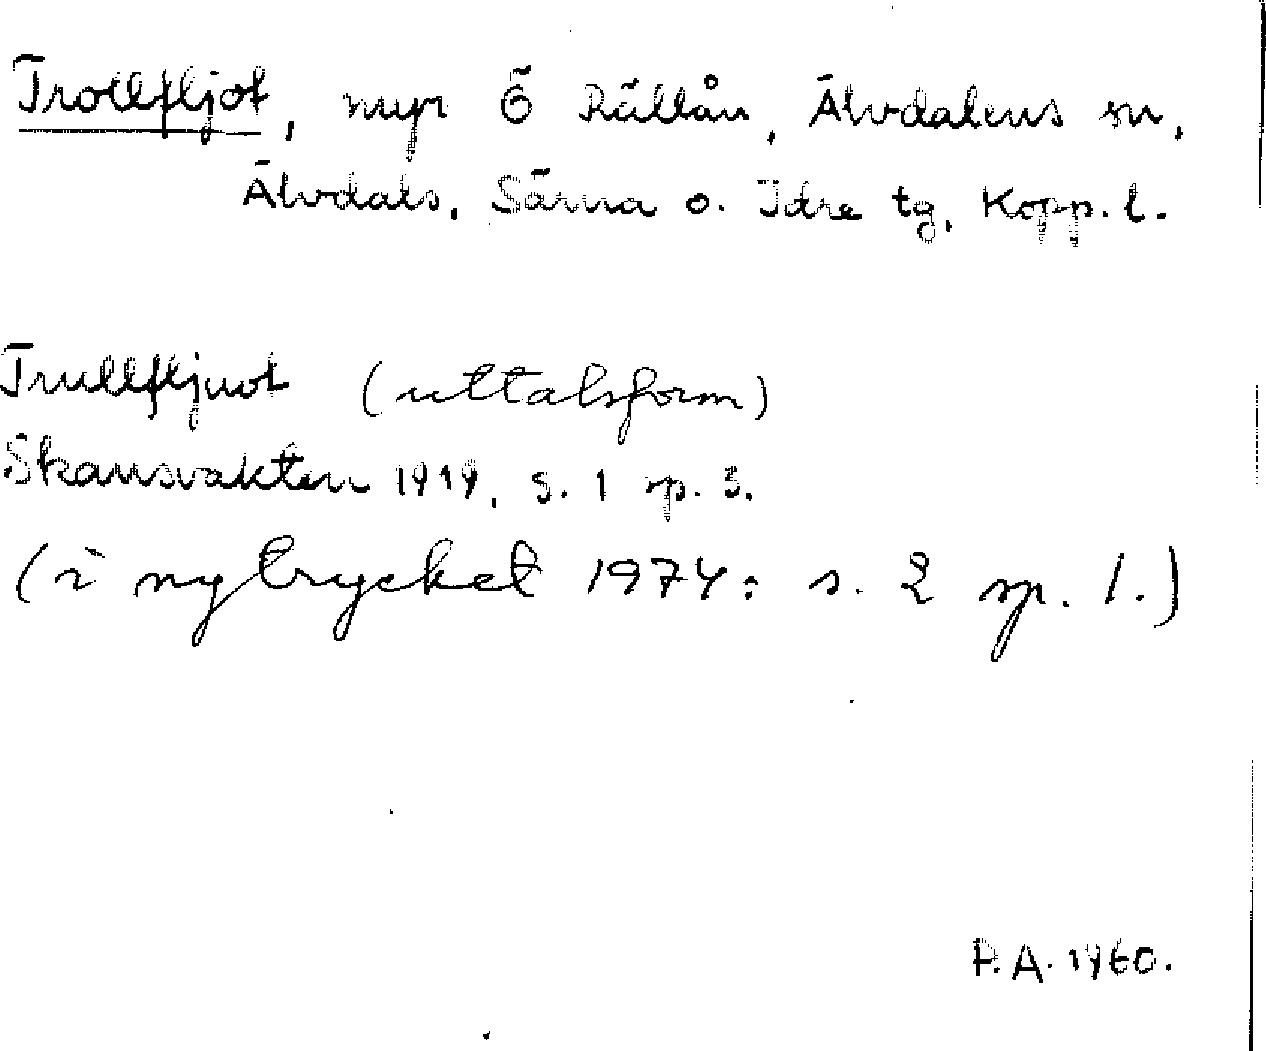 Trollfljot, myr Ö Rällån, Älvdalens sn,
Älvdals, Särna o. Idre tg, Kopp. l.
Trullfljuot (uttalsform)
Skansvakten 1919, s. 1 sp. 3.
(i nytrycket 1974: s. 2 sp. 1.)
P.A. 1960.